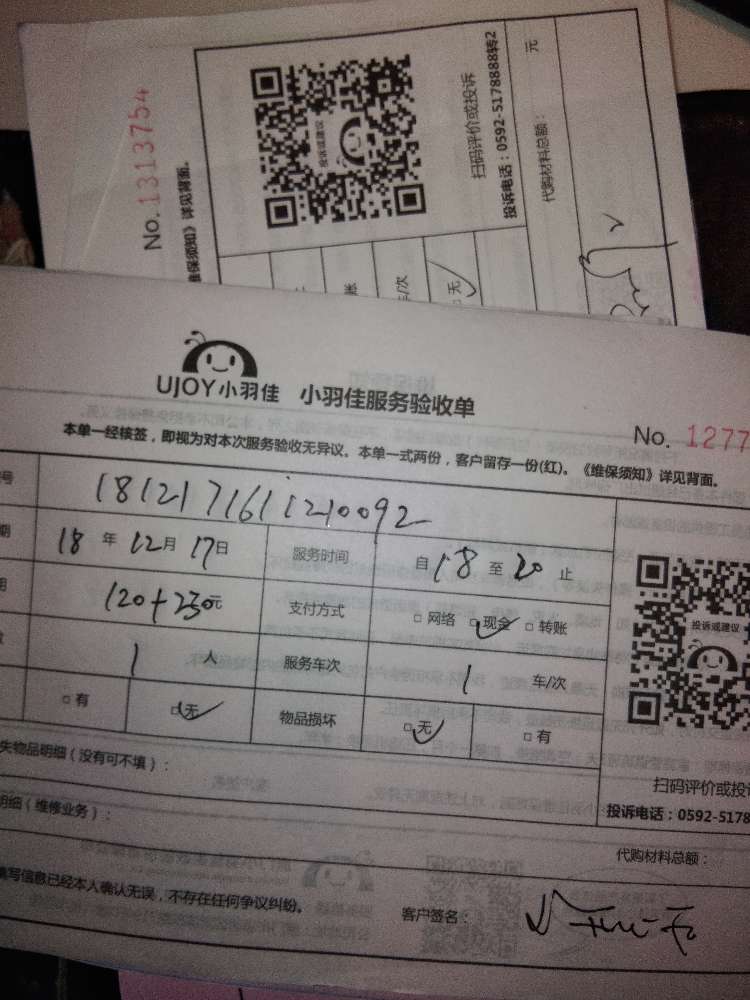 No.1313754
维保须知》详见背面。
投诉或建议
扫码评价或投诉
投诉电话：0592-5178888转2
代购材料总额： 元
账
车/次
□ 无
UJOY小羽佳 小羽佳服务验收单
No. 1277
本单一经核签，即视为对本次服务验收无异议。本单一式两份，客户留存一份(红)。《维保须知》详见背面。
号
期 18 年 12 月 17 日 服务时间 自 18 至 20 止
120+230元 支付方式 □ 网络 □ 现金 □ 转账
1 人 服务车次 1 车/次
□ 有 □ 无 物品损坏 □ 无 □ 有
投诉或建议
失物品明细（没有可不填）：
扫码评价或投
明细（维修业务）：
投诉电话：0592-5178
代购材料总额：
填写信息已经本人确认无误，不存在任何争议纠纷。
客户签名：